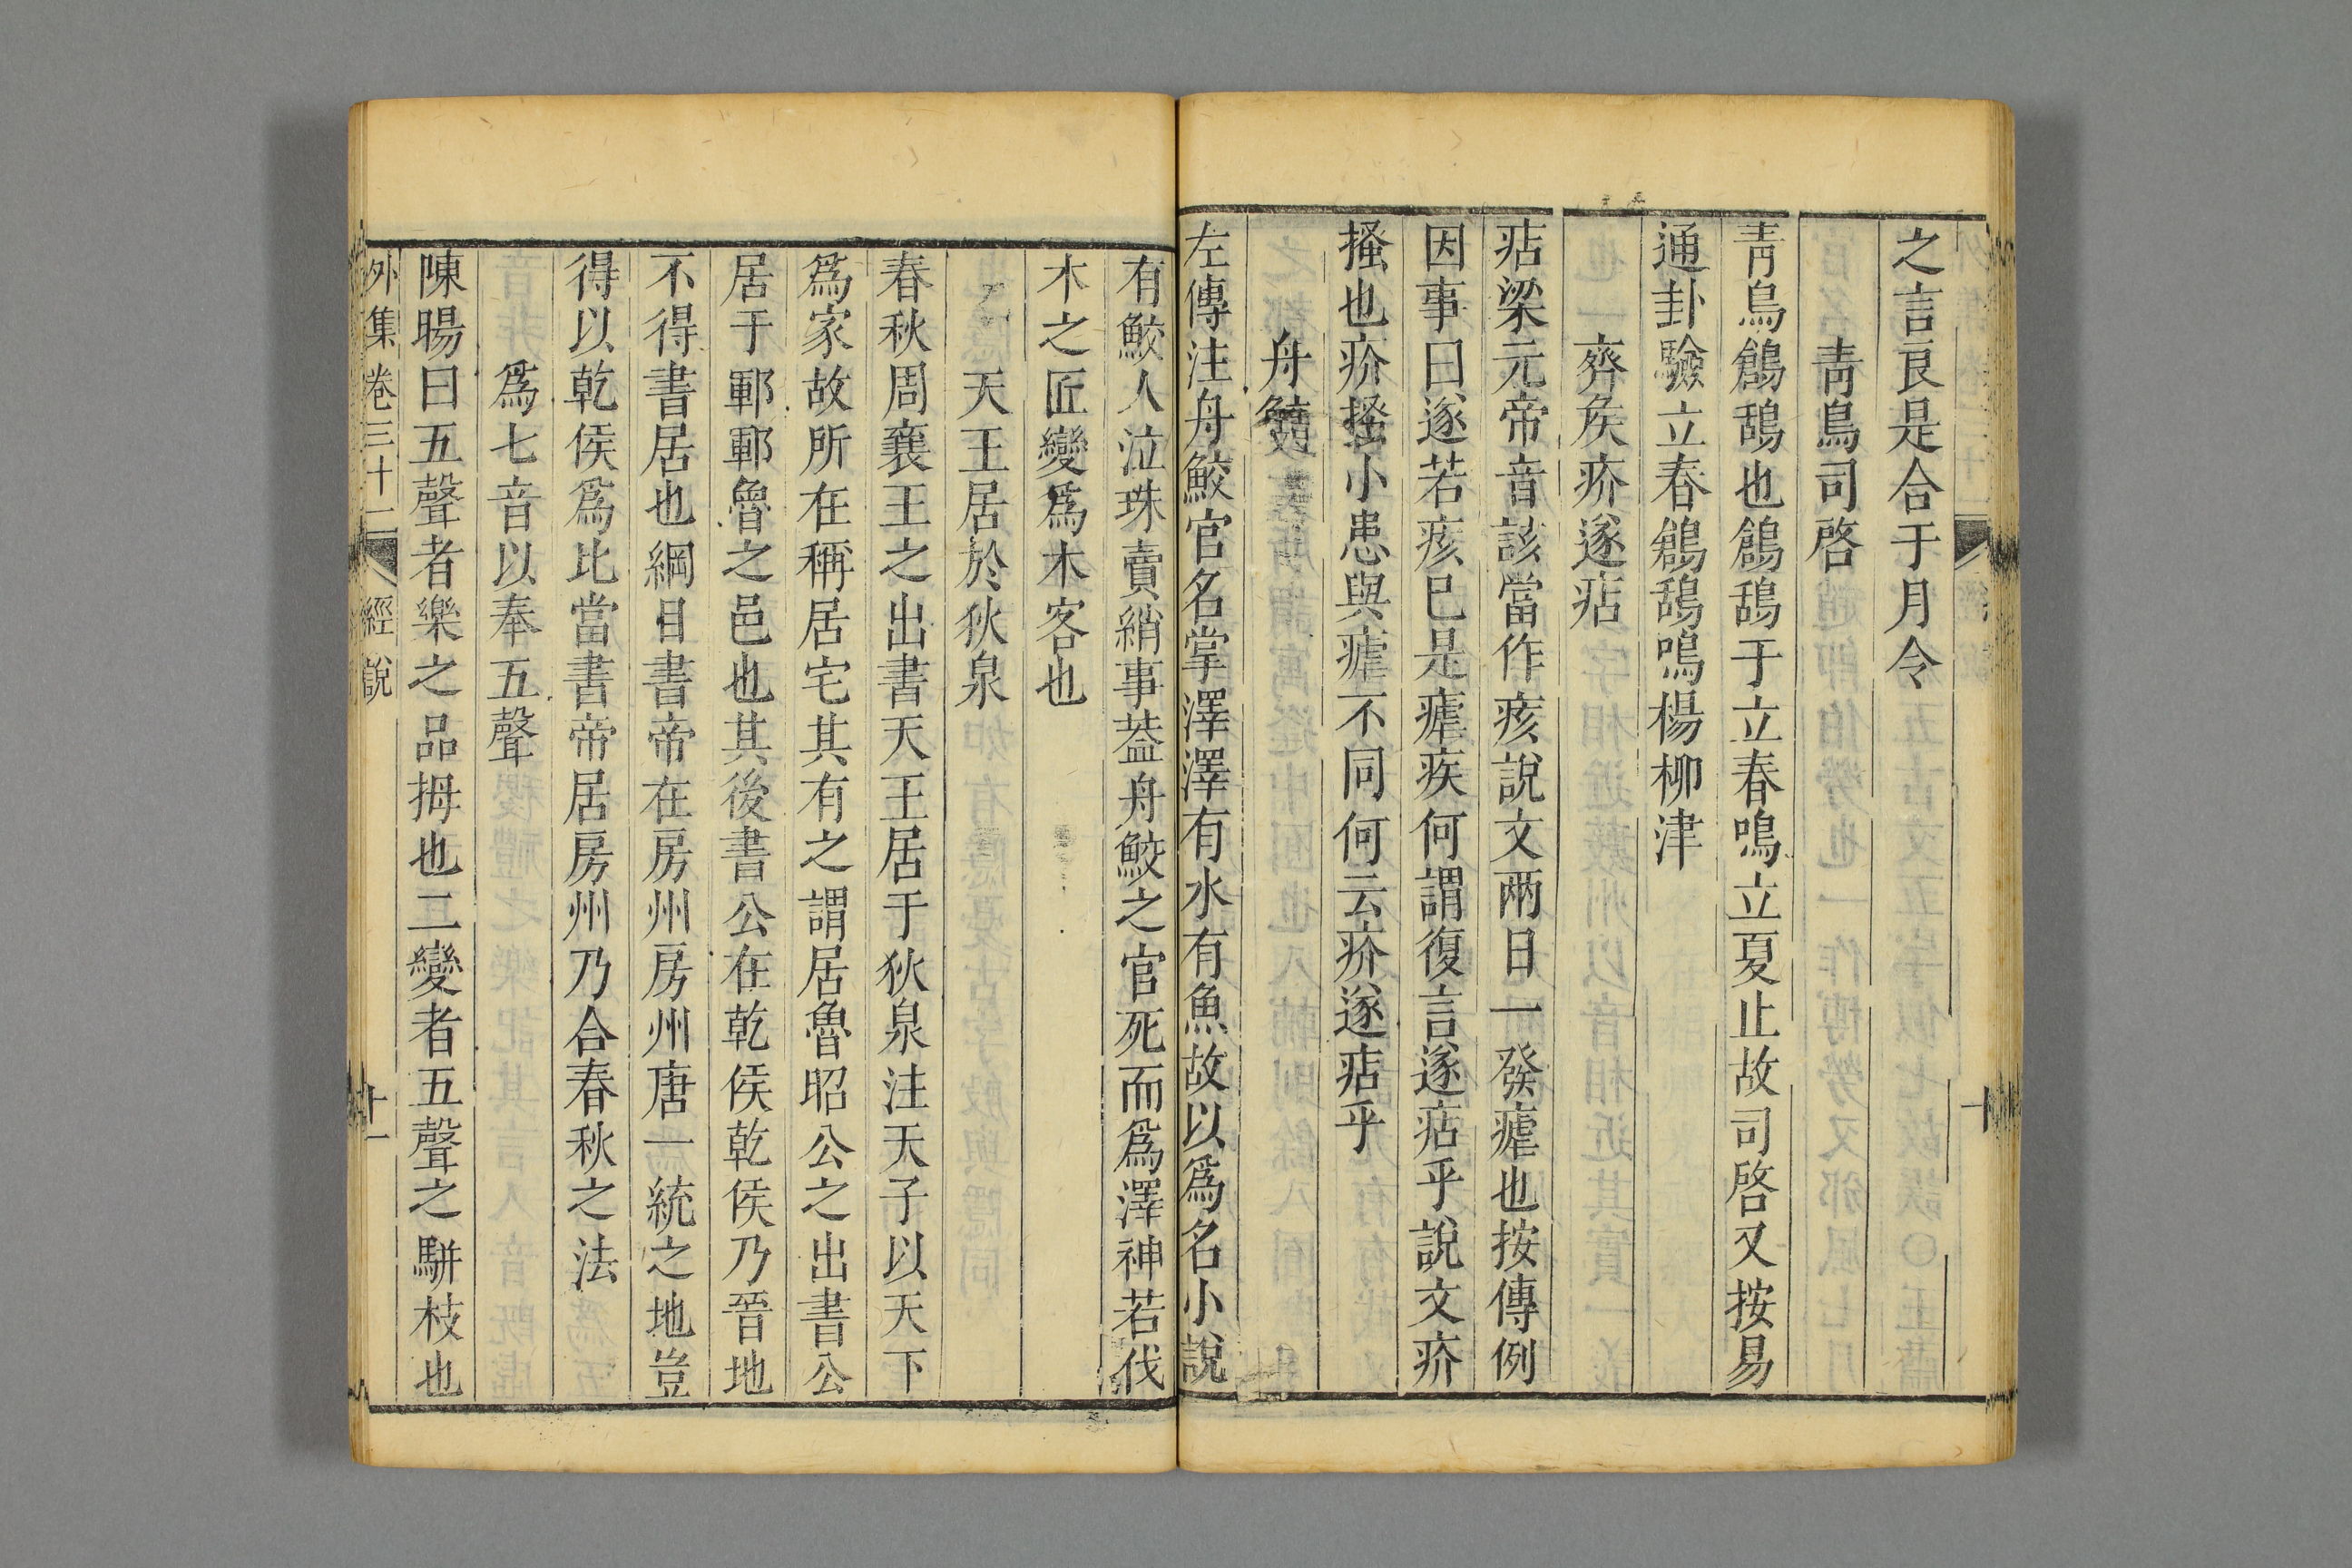 之言良是合于月令
青鳥司啓
青鳥鶬鴰也鶬鴰于立春鳴立夏止故司啓又按易
通卦驗立春鶬鴰鳴楊柳津
齊矦疥遂痁
痁梁元帝音該當作痎說文兩日一發瘧也按傳例
因事曰遂若痎已是瘧疾何謂復言遂痁乎說文疥
搔也疥搔小患與瘧不同何云疥遂痁乎
舟鮫
左傳注舟鮫官名掌澤澤有水有魚故以爲名小說
有鮫人泣珠賣綃事葢舟鮫之官死而爲澤神若伐
木之匠變爲木客也
天王居於狄泉
春秋周襄王之出書天王居于狄泉注天子以天下
爲家故所在稱居宅其有之謂居魯昭公之出書公
居于鄆鄆魯之邑也其後書公在乾侯乾侯乃晉地
不得書居也綱目書帝在房州房州唐一統之地豈
得以乾侯爲比當書帝居房州乃合春秋之法
爲七音以奉五聲
陳暘曰五聲者樂之品拇也二變者五聲之駢枝也
外集卷三十二
經說
十一